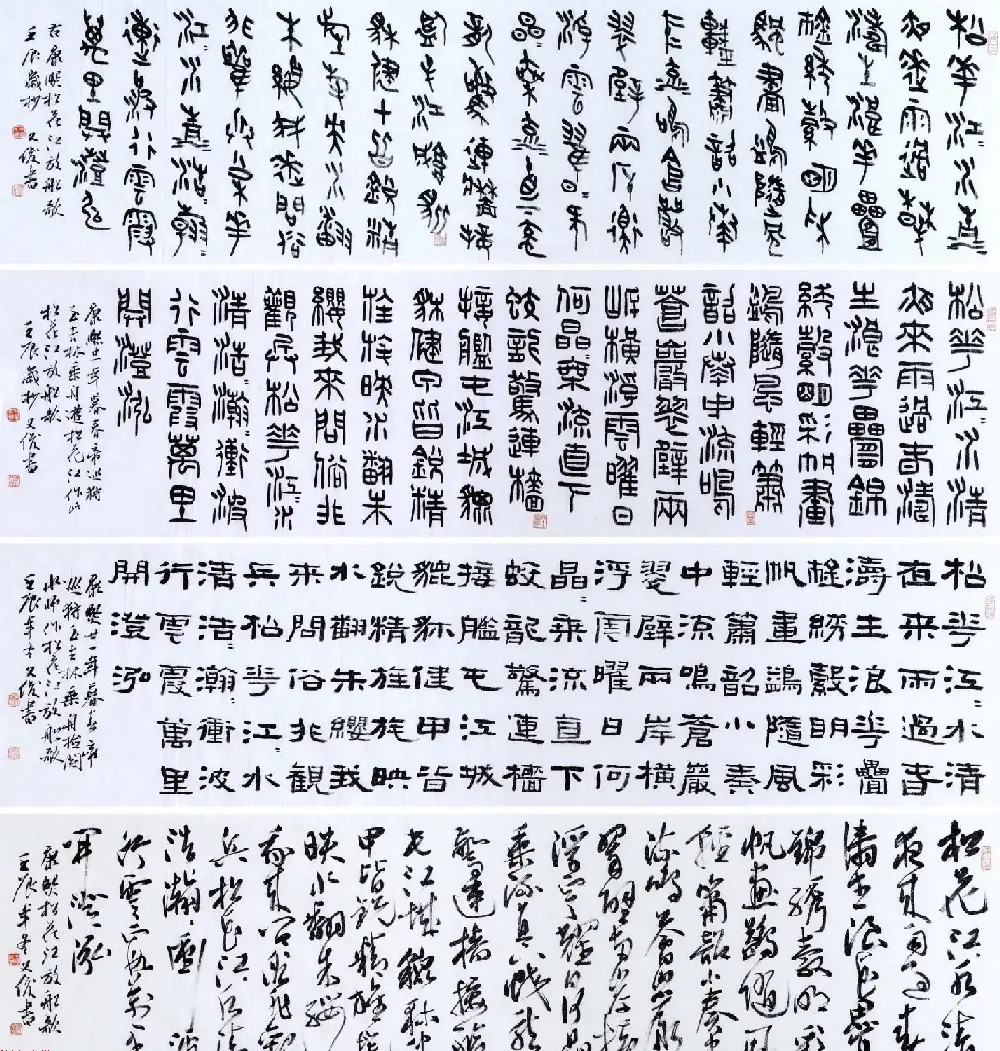 松華江江水清
夜來雨過春
濤生浪華疊
錦綉縠明彩
帆畫鷁隨風
輕簫韶小奏
中流鳴蒼巖
翠壁兩岸橫
浮雲曜日何
晶晶乘流直下
蛟龍驚連檣接
艦屯江城貔
貅健甲皆銳精
旌旄映水翻
朱纓我來問俗
非觀兵松華
江江水清浩浩瀚瀚
衝波行雲霞
萬里開澄泓
右康熙松花江放船歌
壬辰歲杪 又俊書
松華江江水清
夜來雨過春濤
生浪華疊錦
綉縠明彩帆畫
鷁隨風輕簫
韶小奏中流鳴
蒼巖翠壁兩
岸橫浮雲曜日
何晶晶乘流直下
蛟龍驚連檣
接艦屯江城貔
貅健甲皆銳精
旌旄映水翻朱
纓我來問俗非
觀兵松華江江水
清浩浩瀚瀚衝波
行雲霞萬里
開澄泓
康熙廿一年暮春帝巡狩
至吉林乘舟遊松花江作此
松花江放船歌
壬辰歲杪又俊書
松花江江水清
夜來雨過春
濤生浪花疊
錦綉縠明彩
帆畫鷁隨風
輕簫韶小奏
中流鳴蒼巖
翠壁兩岸橫
浮雲曜日何
晶晶乘流直下
蛟龍驚連檣
接艦屯江城
貔貅健甲皆
銳精旌旄映
水翻朱纓我
來問俗非觀
兵松花江江水
清浩浩瀚瀚衝波
行雲霞萬里
開澄泓
康熙廿一年暮春帝
巡狩至吉林乘舟檢閱
水師作松花江放船歌
壬辰年冬又俊書
松花江水清
夜來雨過春
濤生浪花疊
錦綉縠明彩
帆畫鷁隨風
輕簫韶小奏
流鳴蒼巖
翠壁兩岸橫
浮雲耀日何晶
乘流直下蛟龍
驚連檣接艦
屯江城貔貅
甲皆銳精旌旄
映水翻朱纓
我來問俗非觀
兵松花江江水清
浩瀚衝波
行雲霞萬里
開澄泓
康熙松花江放船歌
壬辰年冬又俊書